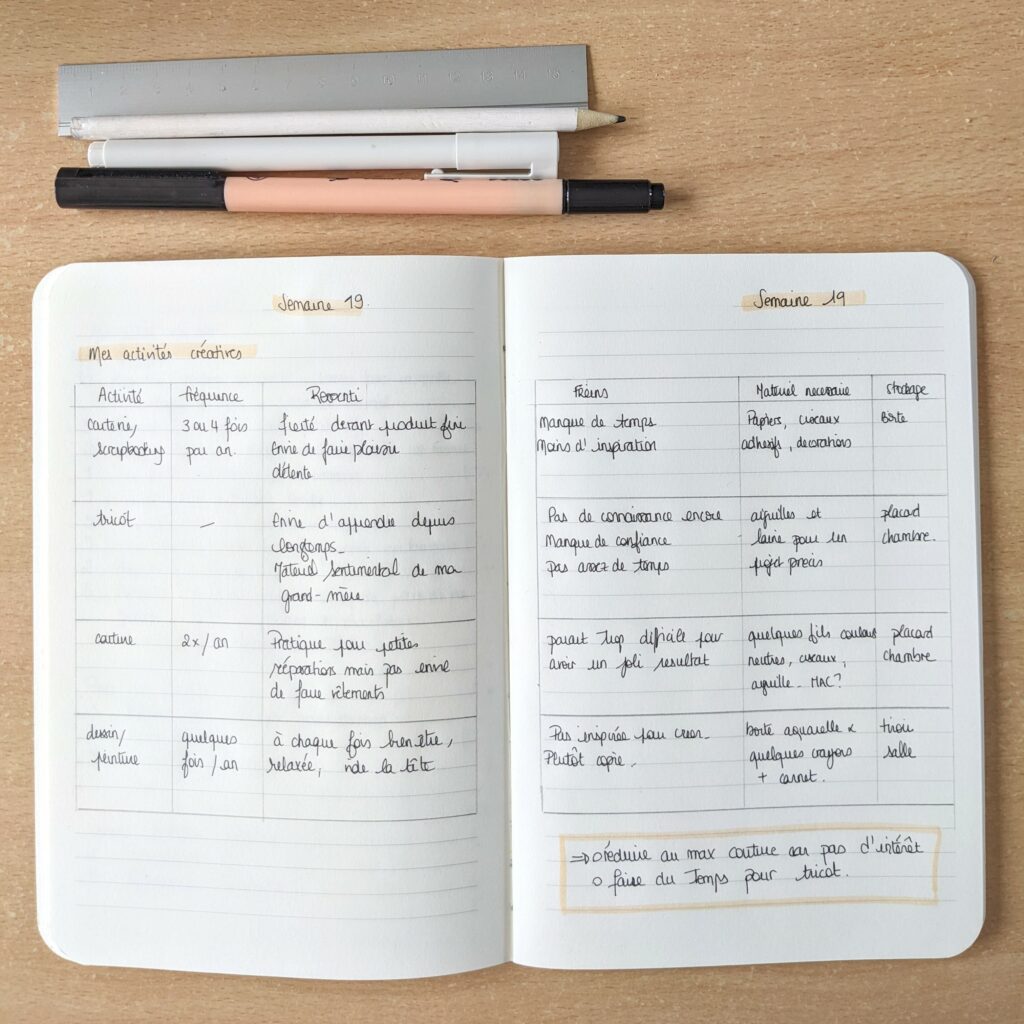 1 2 3 4 5 6 7 8 9 10 11 12 13 14 15
Semaine 19.
Mes activités créatives
Activité fréquence Ressenti
carterie, 3 ou 4 fois fierté devant produit fini
scrapbooking par an. Envie de faire plaisir
détente
tricot - Envie d'apprendre depuis
longtemps_
Materiel sentimental de ma
grand-mère
couture 2x/an Pratique pour petites
réparations mais pas envie
de faire vêtements
dessin/ quelques à chaque fois bien etre,
peinture fois/an relaxée, vide la tête
Semaine 19
Freins Materiel necessaire stockage
Manque de temps Papiers, ciseaux Boite
Moins d'inspiration adhesifs, decorations
Pas de connaissance encore aiguilles et placard
Manque de confiance laine pour un chambre.
pas assez de temps projet precis
parait trop difficile pour quelques fils couleurs placard
avoir un joli resultat neutres, ciseaux, chambre
aiguille_ MAC?
Pas inspirée pour creer_ boite aquarelle & tiroir
Plutôt copie. quelques crayons salle
+ carnet.
⇒ o réduire au max couture car pas d'intérêt
o faire du Temps pour tricot.